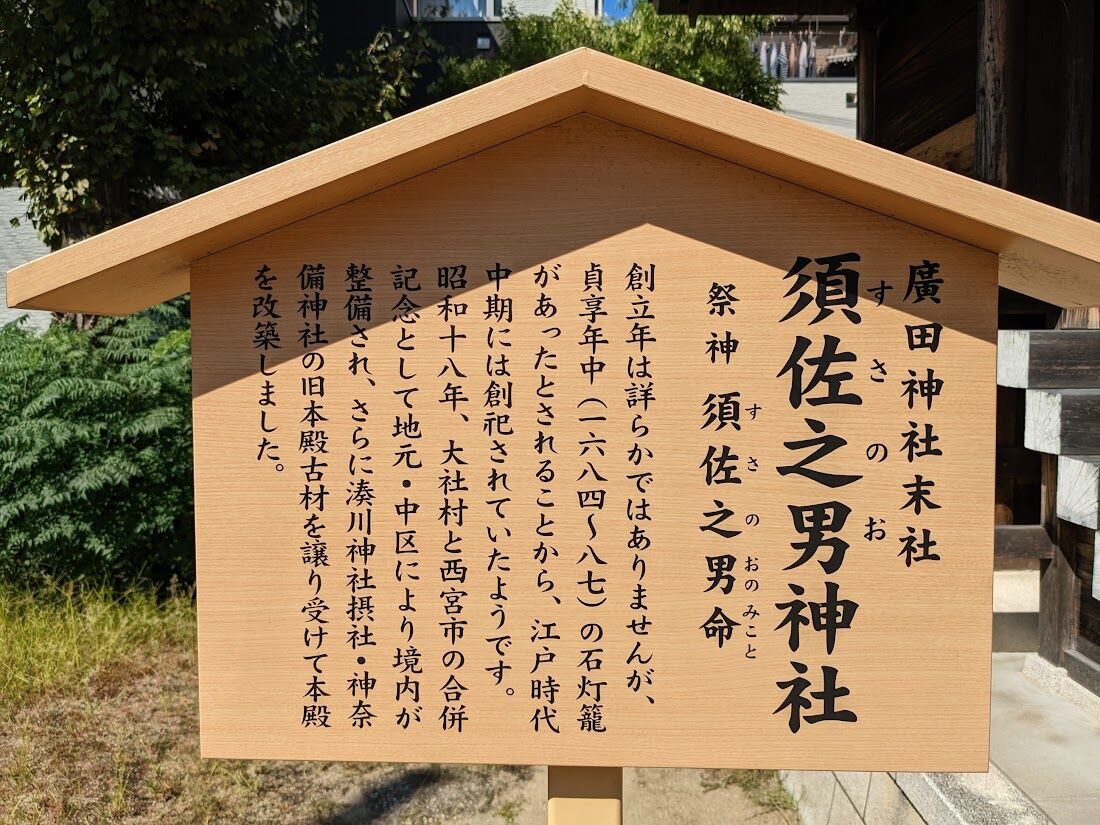 廣田神社末社
須佐之男神社
すさのお
祭神 須佐之男命
すさのおのみこと
創立年は詳らかではありませんが、
貞享年中(一六八四〜八七)の石灯籠
があったとされることから、江戸時代
中期には創祀されていたようです。
昭和十八年、大社村と西宮市の合併
記念として地元・中区により境内が
整備され、さらに湊川神社摂社・神奈
備神社の旧本殿古材を譲り受けて本殿
を改築しました。